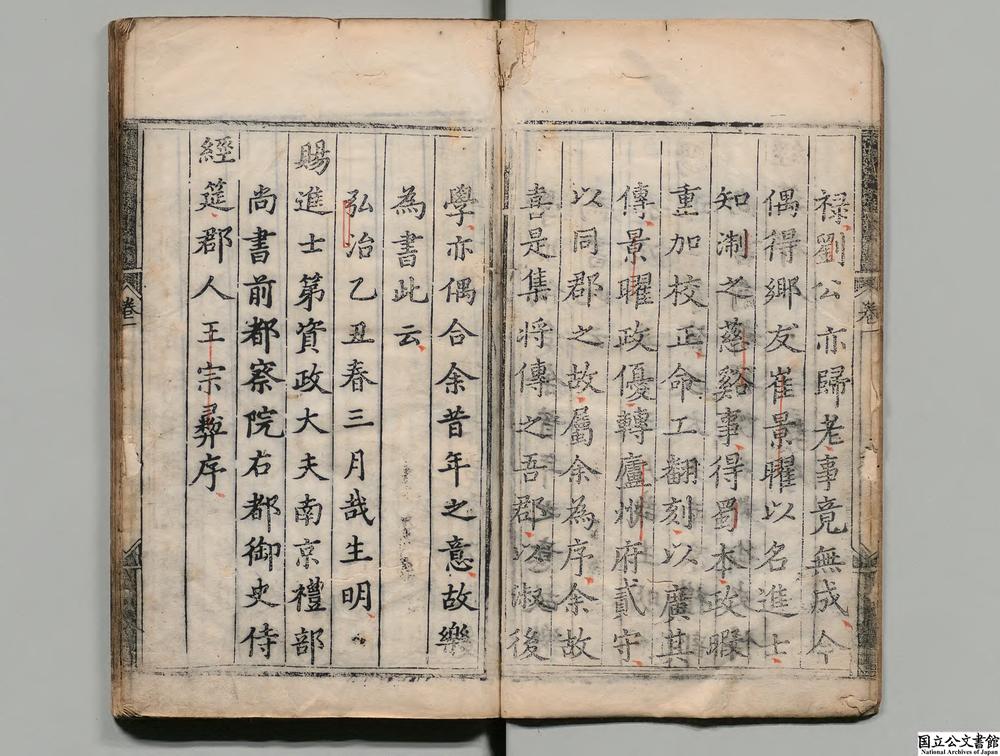 祿劉公亦歸老事竟無成今
偶得鄉友崔景曜以名進士
知淛之慈谿事得蜀本政暇
重加校正命工翻刻以廣其
傳景曜政優轉廬州府貳守
以同郡之故屬余為序余故
喜是集將傳之吾郡以淑後
學亦偶合余昔年之意故樂
為書此云
弘治乙丑春三月哉生明
賜進士第資政大夫南京禮部
尚書前都察院右都御史侍
經筵郡人王宗彞序
卷一
卷一
国立公文書館
National Archives of Japan